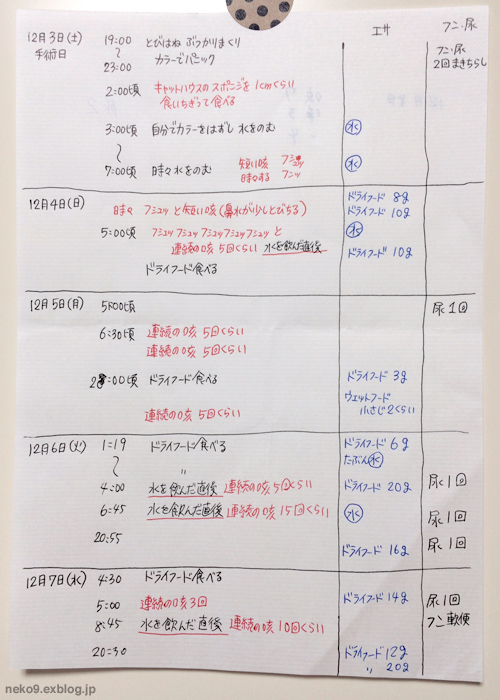 エサ
フン・尿
12月3日(土)
手術日
19:00
〜
23:00
とびはね ぶつかりまくり
カラーでパニック
フン・尿
2回まきちらし
2:00頃
キャットハウスのスポンジを 1cmくらい
食いちぎって食べる
3:00頃 自分でカラーをはずし 水をのむ 水
〜
7:00頃 時々水をのむ 短い咳 時々する フシュッ フニッ 水
12月4日(日)
時々 フシュッと短い咳(鼻水が少しとびちる)
ドライフード 8g
ドライフード 10g
5:00頃 フシュッフシュッフシュッフシュッフシュッと 水
連続の咳 5回くらい 水を飲んだ直後
ドライフード 10g
ドライフード食べる
12月5日(月) 5:00頃 尿1回
6:30頃 連続の咳 5回くらい
連続の咳 5回くらい
2:00頃 ドライフード食べる ドライフード 3g
ウェットフード
小さじ2くらい
連続の咳 5回くらい
12月6日(火) 1:19 ドライフード食べる ドライフード 6g
〜 〃 たぶん水
4:00 水を飲んだ直後 連続の咳5回くらい ドライフード 20g 尿1回
6:45 水を飲んだ直後 連続の咳15回くらい 水 尿1回
20:55 ドライフード 16g 尿1回
12月7日(水) 4:30 ドライフード食べる ドライフード 14g
5:00 連続の咳3回 尿1回
8:45 水を飲んだ直後 連続の咳10回くらい フン軟便
20:30 ドライフード 12g
〃 20g
neko9.exblog.jp